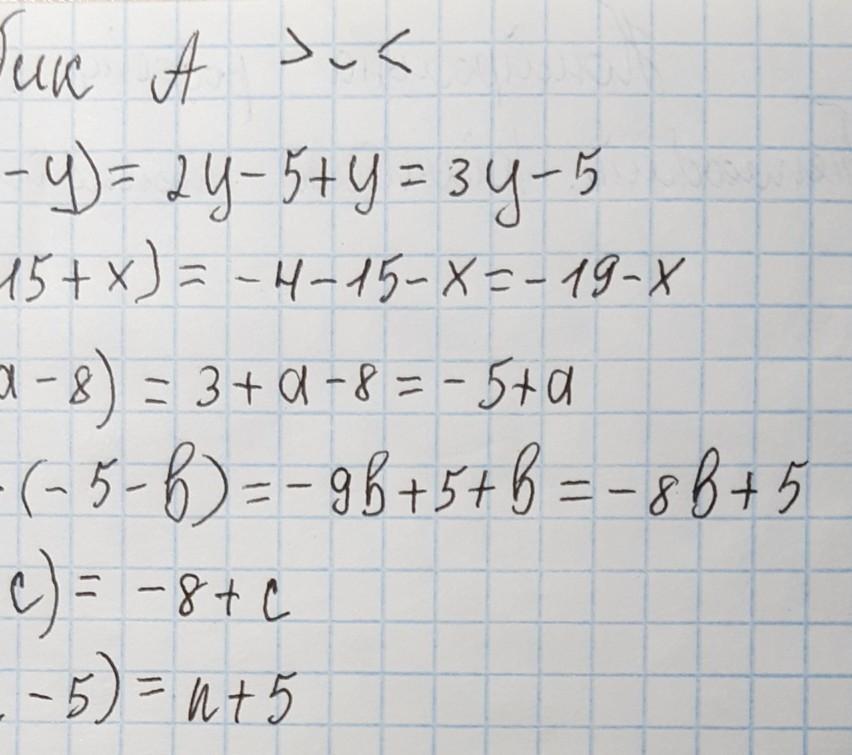 бик А >-<
- y) = 2y - 5 + y = 3y - 5
15 + x) = - 4 - 15 - x = - 19 - x
a - 8) = 3 + a - 8 = - 5 + a
- (- 5 - b) = - 9b + 5 + b = - 8b + 5
c) = - 8 + c
- 5) = n + 5